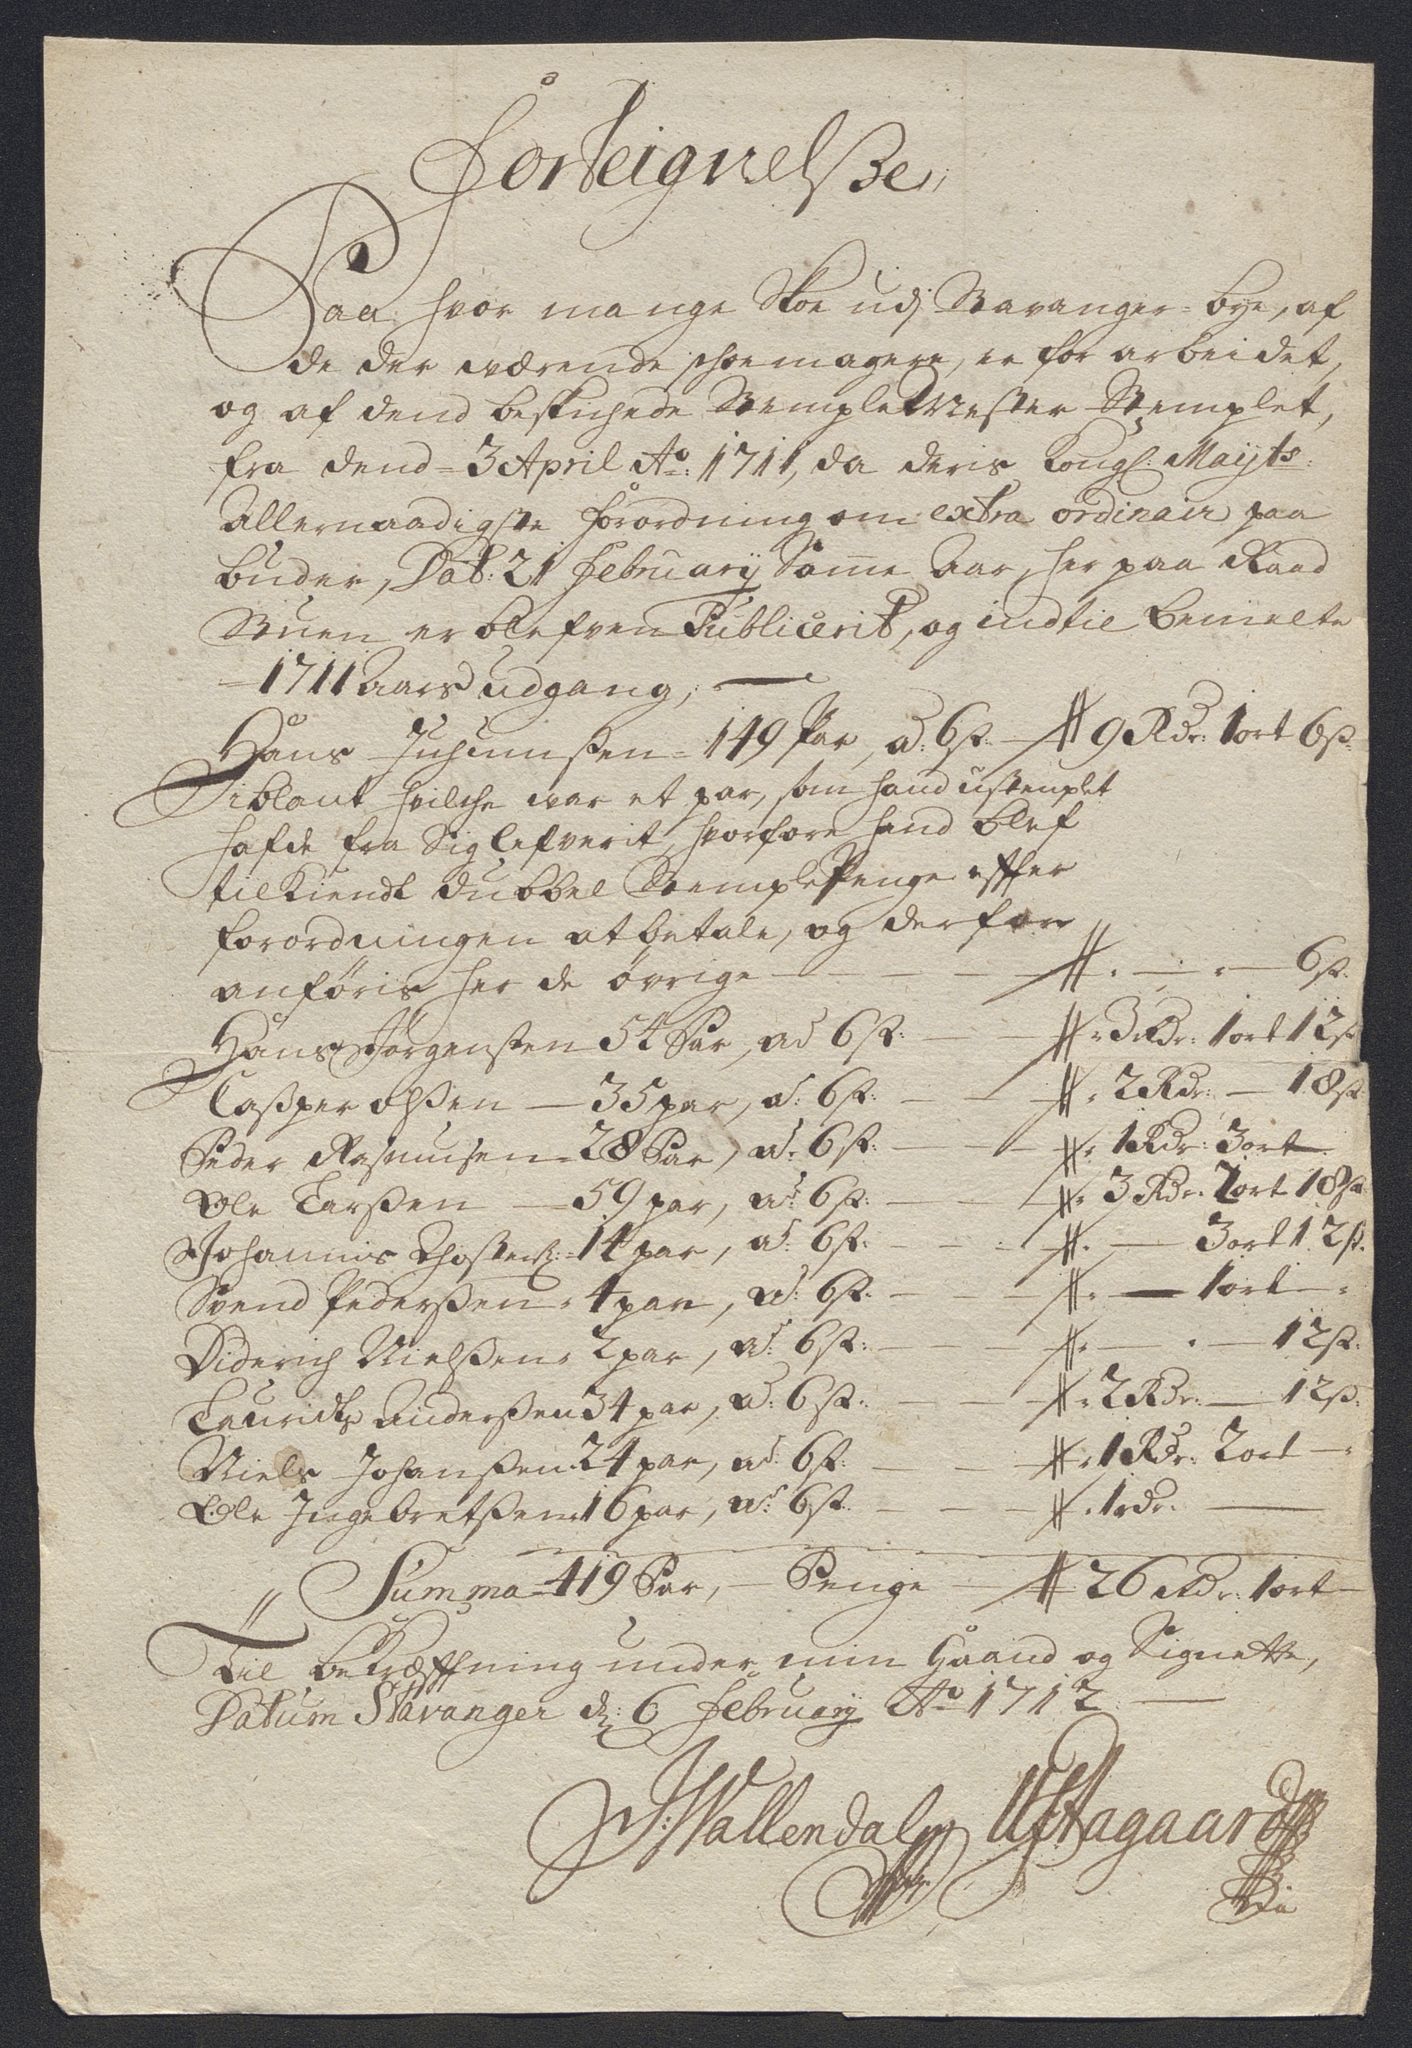 Forteignelsse
Paa hvor mange Skoe udj Stavanger bye, af
de der værende schoemagere, er forarbeidet,
og af dend beskichede Stemplemester Stemplet,
fra dend 3 April Ao: 1711, da deris Kongl: Mayts:
Allernaadigste forordning om extra ordinair paa
buder, Dat: 21 February Samme Aar, her paa Raad
Stuen er blefven Publicerit, og indtil bemelte
1711 Aars udgang,
Hans 149 Par, ad 6 ß: 9 Rdr: 1 ort 6 ß:
iblant hvilche var et par, som hand ustemplet
hafde fra Sig lefverit, hvorfore hand blef
tilkiendt dubbel Stemple Penge effter
forordningen at betale, og derfor
anföris her de övrige 6 ß:
Hans Jörgenssen 54 Par, ad 6 ß: 3 Rdr: 1 ort 12 ß
Casper olssen 35 par, ad: 6 ß: 2 Rdr: 18 ß:
Peder Rasmusen 28 Par, ad: 6 ß: 1 Rdr: 3 ort
Ole Larssen 59 par, ad: 6 ß: 3 Rdr: 2 ort 18 ß
Johannis 14 par, ad: 6 ß: 3 ort 12 ß:
Svend Pederssen 4 par, ad: 6 ß: 1 ort
Diderich Nielssen 2 par, ad: 6 ß: 12 ß:
Lauridts Anderssen 34 par, ad: 6 ß: 2 Rdr: 12 ß:
Niels Johanssen 24 par, ad: 6 ß: 1 Rdr: 2 ort
Ole Ingebretssen 16 par, ad: 6 ß: 1 rdr:
Summa 419 Par, Penge 26 Rdr: 1 ort
Til bekræfftning under min Haand og Signette,
Datum Stavanger d: 6 February Ao 1712
J: Wallendal